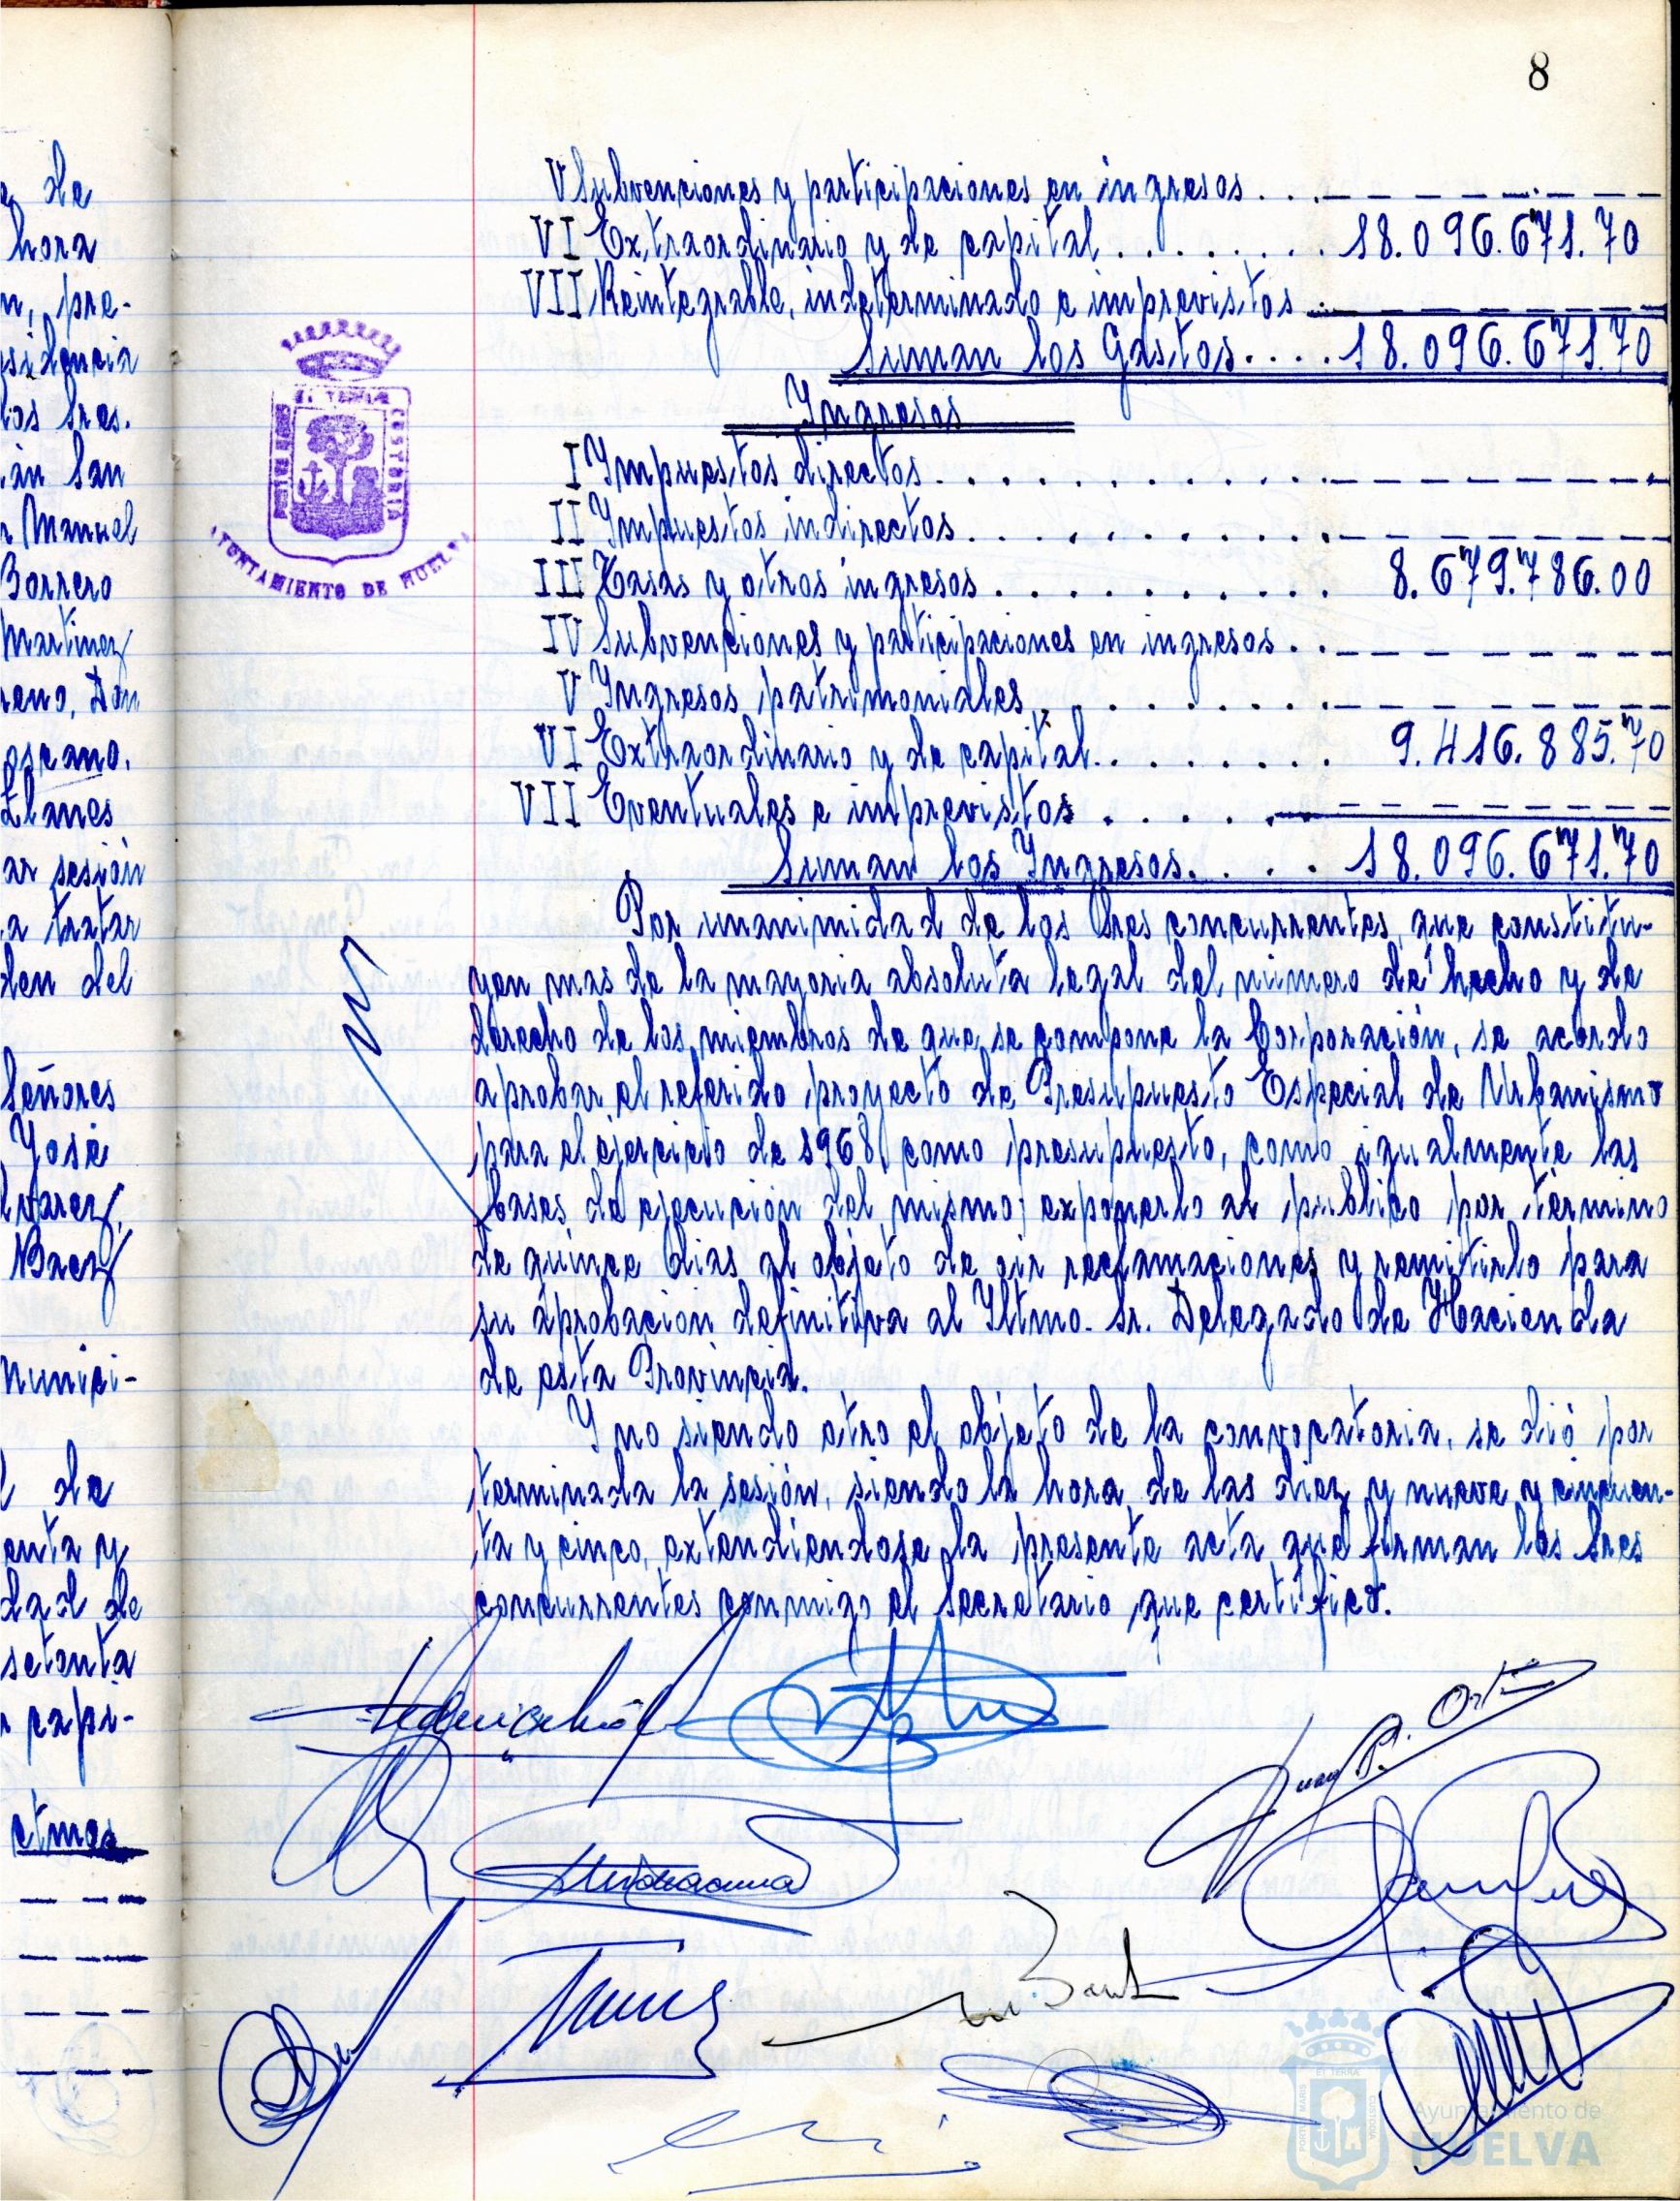 8
V Subvenciones y participaciones en ingresos . . . — — — — — — —
VI Extraordinario y de capital . . . . . . . 18.096.671.70
VII Reintegrable, indeterminado e imprevistos .
Suman los Gastos . . . . 18.096.671.70
Ingresos
I Impuestos directos . . . . . . . . . . . . — — — — — — —
II Impuestos indirectos . . . . . . . . . . . — — — — — — —
III Tasas y otros ingresos . . . . . . . . . . . 8.679.786.00
IV Subvenciones y participaciones en ingresos . . — — — — — — —
V Ingresos patrimoniales . . . . . . . . . — — — — — — —
VI Extraordinario y de capital . . . . . . . . 9.416.885.70
VII Eventuales e imprevistos . . . . . . — — — — — — —
Suman los Ingresos. . . . 18.096.671.70
Por unanimidad de los Sres concurrentes, que constitu-
yen mas de la mayoria absoluta legal del número de hecho y de
derecho de los miembros de que se compone la Corporación, se acordo
aprobar el referido proyecto de Presupuesto Especial de Urbanismo
para el ejercicio de 1968, como presupuesto, como igualmente las
bases de ejecución del mismo; exponerlo al publico por término
de quince dias al objeto de oir reclamaciones y remitirlo para
su aprobación definitiva al Iltmo. Sr. Delegado de Hacienda
de esta Provincia.
Y no siendo otro el objeto de la convocatoria, se dió por
terminada la sesión, siendo la hora de las diez y nueve y cincuen-
ta y cinco, extendiendose la presente acta que firman los Sres
concurrentes conmigo el Secretario que certifico.
Juan R. Ortiz
de
hora
n, pre-
sidencia
los Sres.
án San
Manuel
Borrero
Martinez
reno, Don
oscano.
Llanes
ar sesión
a tratar
den del
Señores
José
lvarez,
Baez
Munici-
de
enta y
dad de
setenta
capi-
EL TERRAE
CUSTODIA
AYUNTAMIENTO DE HUELVA
PORTUS MARIS
ET TERRAE
CUSTODIA
Ayuntamiento de
HUELVA